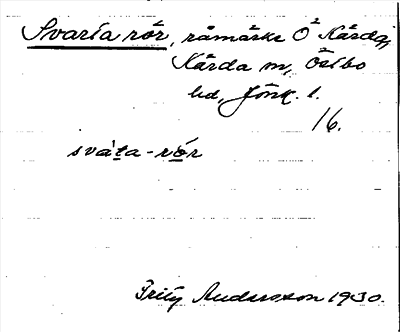 Svarta rör, råmärke Ö Kärda,
Kärda sn, Östbo
hd, Jönk. l.
16.
sváta-rör
Fritz Andersson 1930.